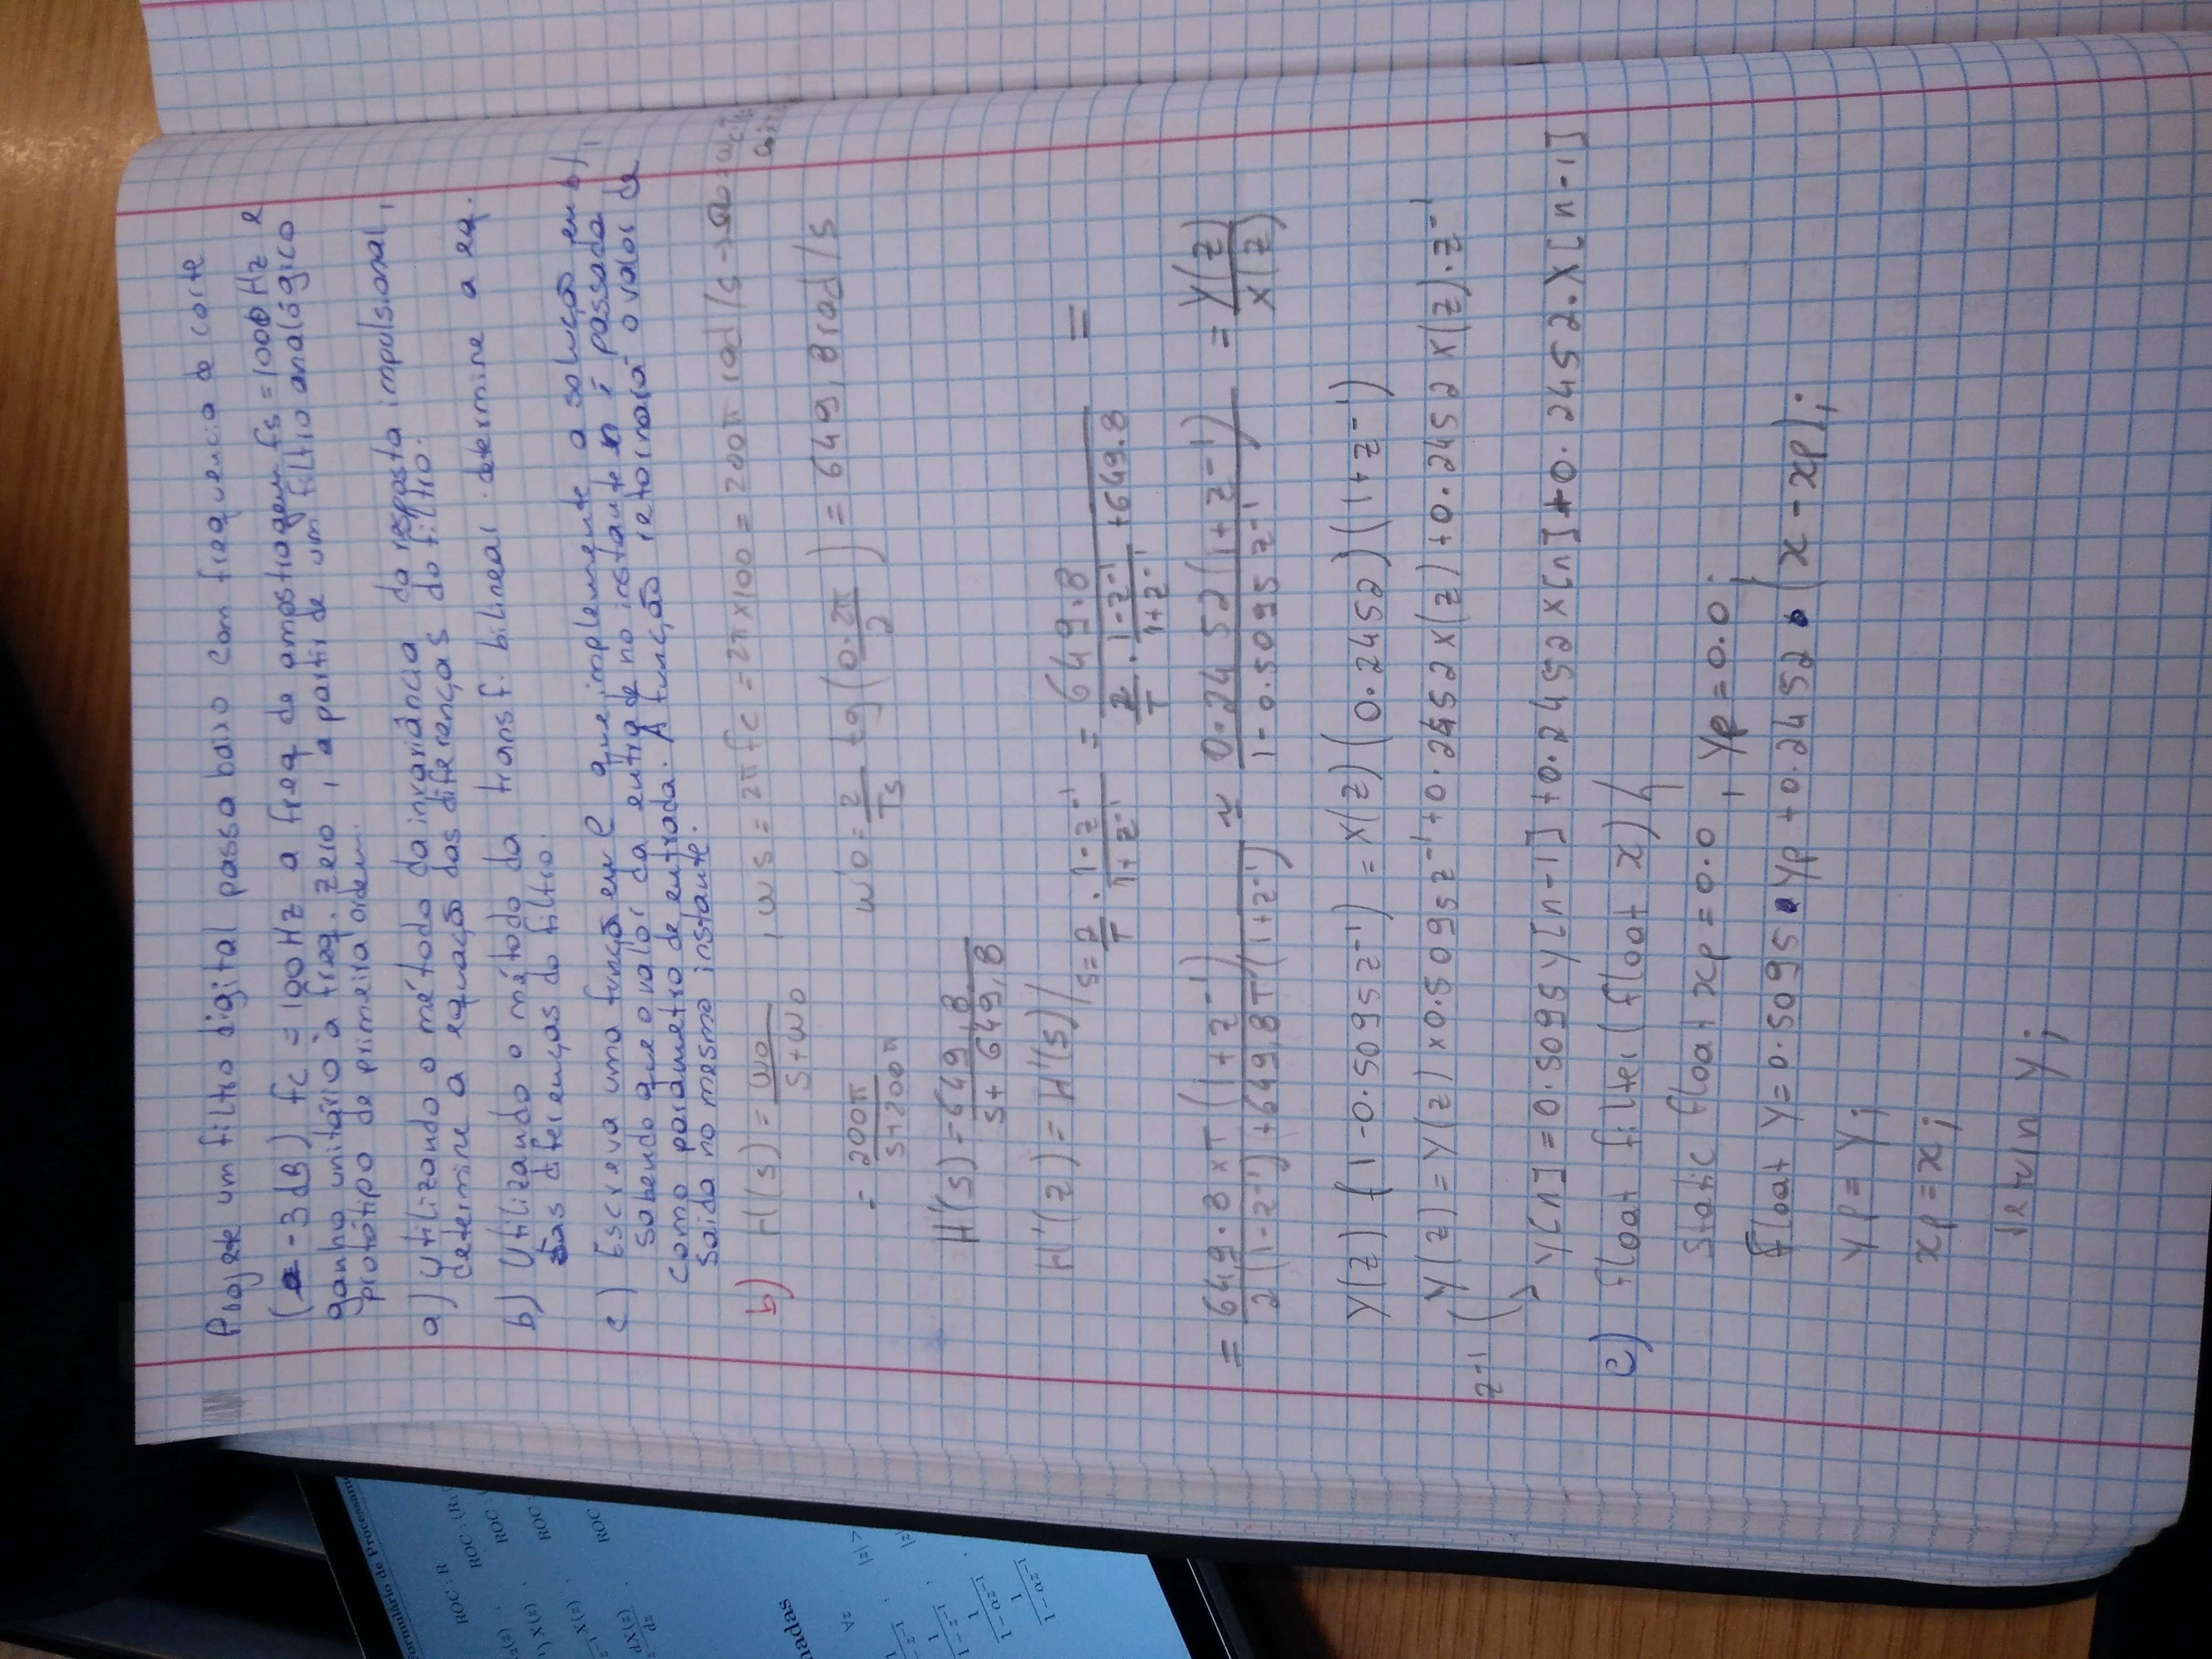 Projete um filtro digital passa baixo com frequencia de corte
(-3dB) fc = 100 Hz a freq de amostragem fs = 1000 Hz e
ganho unitário à freq. zero, a partir de um filtro analógico
protótipo de primeira ordem.
a) Utilizando o método da invariância da resposta impulsional,
determine a equação das diferenças do filtro.
b) Utilizando o método da transf. bilinear determine a eq.
das diferenças do filtro.
c) Escreva uma função em C que implemente a solução em b),
sabendo que o valor da entrada no instante n é passado
como parametro de entrada. A função retornará o valor de
saída no mesmo instante.
b) H(s) = ω0 / (s + ω0) , ωs = 2π fc = 2π x 100 = 200π rad/s →
= 200π / (s + 200π) ω'0 = 2/Ts tg(0.2π / 2) = 649,8 rad/s
H'(s) = 649,8 / (s + 649,8)
H'(z) = H'(s) | s = 2/T . (1 - z⁻¹)/(1 + z⁻¹) = 649.8 / (2/T . (1 - z⁻¹)/(1 + z⁻¹) + 649.8) =
= 649.8 x T (1 + z⁻¹) / (2(1 - z⁻¹) + 649,8T (1 + z⁻¹)) ≃ 0.2452(1 + z⁻¹) / (1 - 0.5095 z⁻¹) = Y(z) / X(z)
Y(z) (1 - 0.5095z⁻¹) = X(z) (0.2452) (1 + z⁻¹)
Y(z) = Y(z) x 0.5095z⁻¹ + 0.2452 x(z) + 0.2452 x(z) . z⁻¹
z⁻¹ ( > Y[n] = 0.5095 Y[n-1] + 0.2452 x[n] + 0.2452. X[n-1]
c) float filter (float x) {
static float xp = 0.0 , yp = 0.0;
float y = 0.5095 . yp + 0.2452 . (x - xp);
yp = y;
xp = x;
return y;
Formulário de Processamen
ROC : R
ROC : (R
ROC :
ROC :
ROC
2(z) ,
) X(z) ,
z⁻¹X(z) ,
dX(z)/dz ,
nadas
∀z
|z|
1 / 1 - z⁻¹ ,
1 / 1 - αz⁻¹ ,
1 / 1 - αz⁻¹